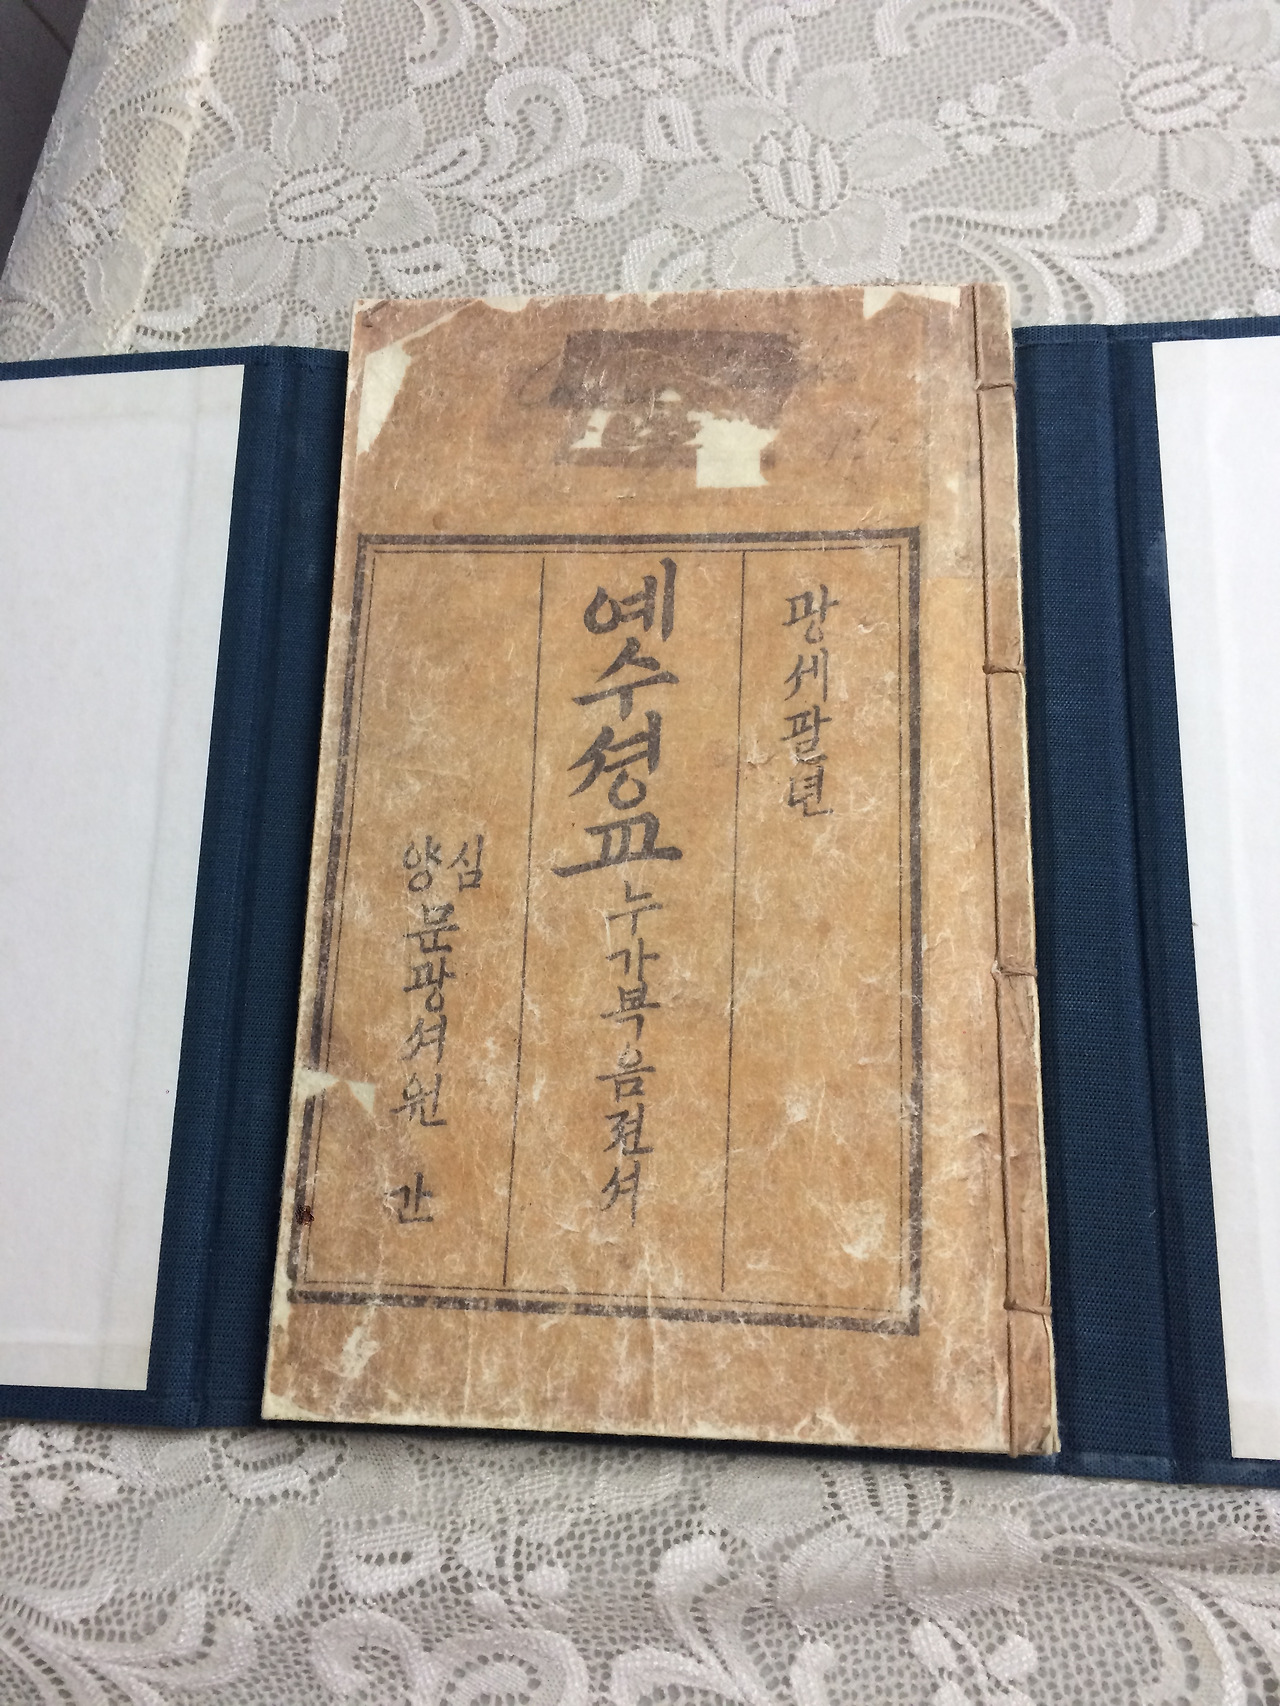 광세팔년
예수셩교누가복음젼셔
심양문광셔원 간